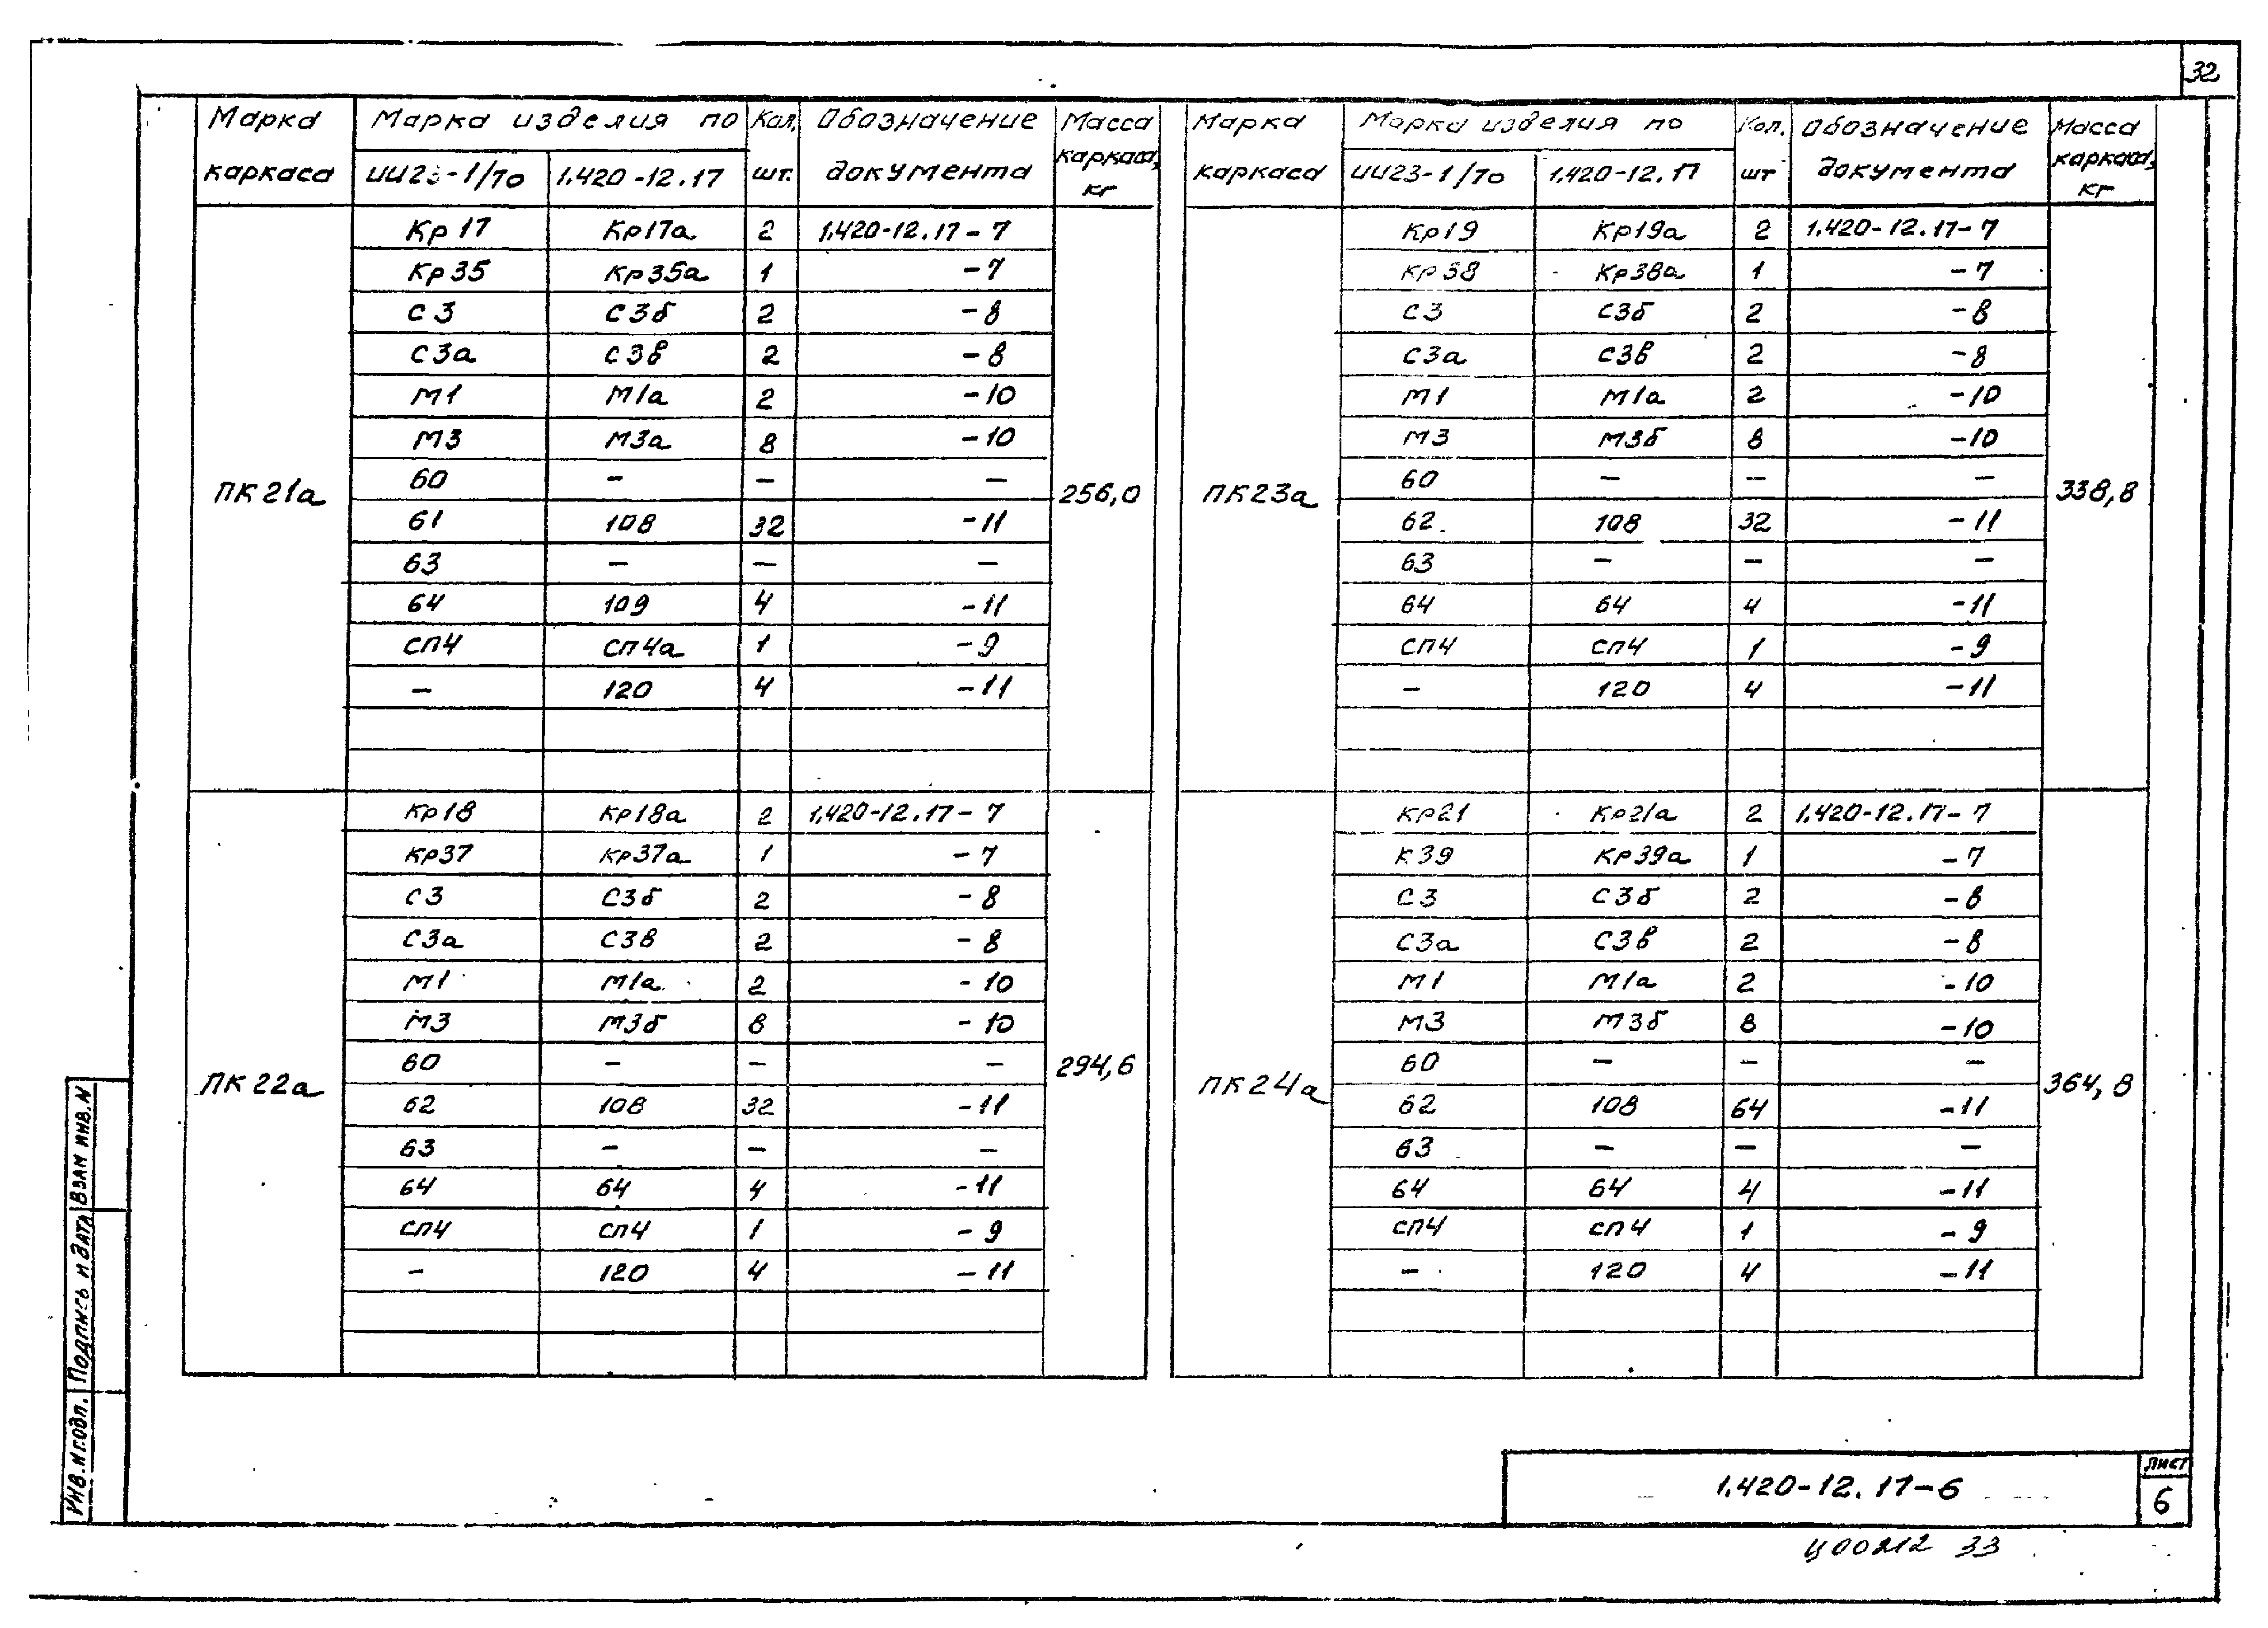 32
Марка каркаса | Марка изделия по ИИ23-1/70 | 1.420-12.17 | Кол. шт. | Обозначение документа | Масса каркаса, кг
ПК21а | 256,0
Кр17 | Кр17а | 2 | 1.420-12.17-7
Кр35 | Кр35а | 1 | -7
С3 | С3б | 2 | -8
С3а | С3в | 2 | -8
М1 | М1а | 2 | -10
М3 | М3а | 8 | -10
60 | – | – | –
61 | 108 | 32 | -11
63 | – | – | –
64 | 109 | 4 | -11
СП4 | СП4а | 1 | -9
– | 120 | 4 | -11
ПК22а | 294,6
Кр18 | Кр18а | 2 | 1.420-12.17-7
Кр37 | Кр37а | 1 | -7
С3 | С3б | 2 | -8
С3а | С3в | 2 | -8
М1 | М1а | 2 | -10
М3 | М3б | 8 | -10
60 | – | – | –
62 | 108 | 32 | -11
63 | – | – | –
64 | 64 | 4 | -11
СП4 | СП4 | 1 | -9
– | 120 | 4 | -11
Марка каркаса | Марка изделия по ИИ23-1/70 | 1.420-12.17 | Кол. шт | Обозначение документа | Масса каркаса, кг
ПК23а | 338,8
Кр19 | Кр19а | 2 | 1.420-12.17-7
Кр38 | Кр38а | 1 | -7
С3 | С3б | 2 | -8
С3а | С3в | 2 | -8
М1 | М1а | 2 | -10
М3 | М3б | 8 | -10
60 | – | – | –
62 | 108 | 32 | -11
63 | – | – | –
64 | 64 | 4 | -11
СП4 | СП4 | 1 | -9
– | 120 | 4 | -11
ПК24а | 364,8
Кр21 | Кр21а | 2 | 1.420-12.17-7
К39 | Кр39а | 1 | -7
С3 | С3б | 2 | -8
С3а | С3в | 2 | -8
М1 | М1а | 2 | -10
М3 | М3б | 8 | -10
60 | – | – | –
62 | 108 | 64 | -11
63 | – | – | –
64 | 64 | 4 | -11
СП4 | СП4 | 1 | -9
– | 120 | 4 | -11
Инв. № подл. | Подпись и дата | Взам инв. №
1.420-12.17-6
Лист
6
Ц00212 33